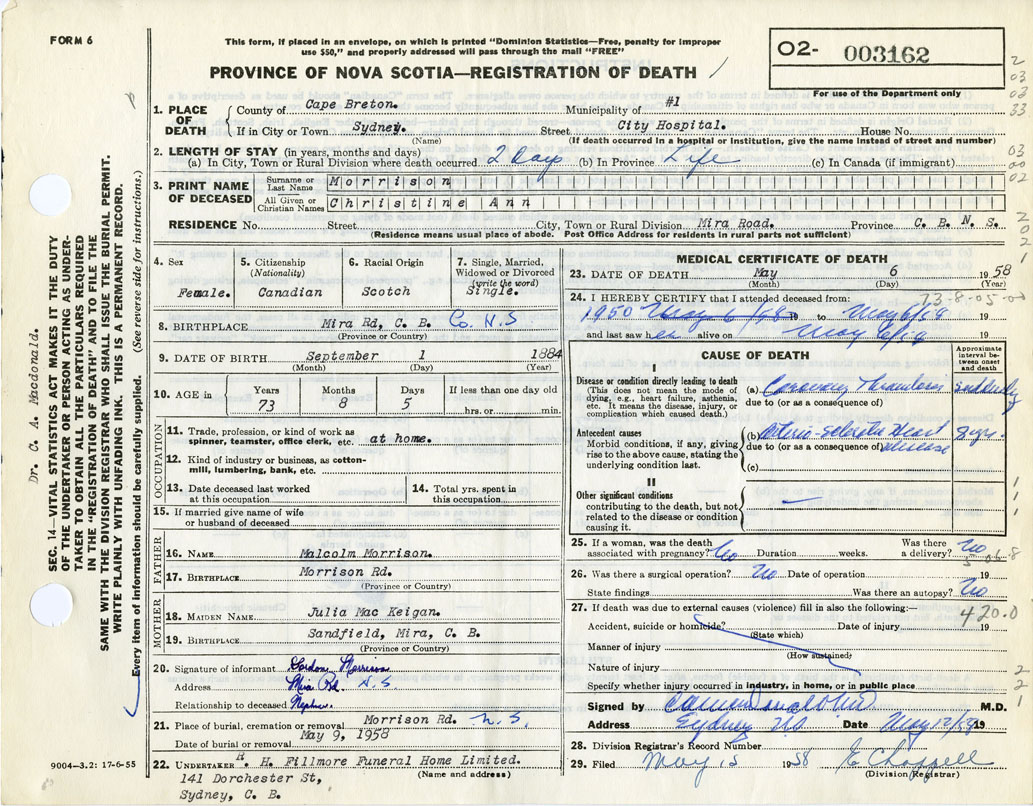 FORM 6
This form, if placed in an envelope, on which is printed "Dominion Statistics—Free, penalty for improper
use $50," and properly addressed will pass through the mail "FREE"
O2- 003162
For use of the Department only
PROVINCE OF NOVA SCOTIA—REGISTRATION OF DEATH
1. PLACE OF DEATH
County of Cape Breton. Municipality of #1
If in City or Town Sydney. Street City Hospital. House No.
(Name) (If death occurred in a hospital or institution, give the name instead of street and number)
2. LENGTH OF STAY (in years, months and days)
(a) In City, Town or Rural Division where death occurred 2 Days (b) In Province Life (c) In Canada (if immigrant)
3. PRINT NAME OF DECEASED
Surname or Last Name Morrison
All Given or Christian Names Christine Ann
RESIDENCE No. Street City, Town or Rural Division Mira Road. Province C. B. N. S.
(Residence means usual place of abode. Post Office Address for residents in rural parts not sufficient)
4. Sex Female.
5. Citizenship (Nationality) Canadian
6. Racial Origin Scotch
7. Single, Married, Widowed or Divorced (write the word) Single.
8. BIRTHPLACE Mira Rd, C. B. Co. N.S
(Province or Country)
9. DATE OF BIRTH September 1 1884
(Month) (Day) (Year)
10. AGE in Years 73 Months 8 Days 5 If less than one day old hrs. or min.
OCCUPATION
11. Trade, profession, or kind of work as spinner, teamster, office clerk, etc. at home.
12. Kind of industry or business, as cotton-mill, lumbering, bank, etc.
13. Date deceased last worked at this occupation
14. Total yrs. spent in this occupation
15. If married give name of wife or husband of deceased
FATHER
16. NAME Malcolm Morrison.
17. BIRTHPLACE Morrison Rd.
(Province or Country)
MOTHER
18. MAIDEN NAME Julia Mac Keigan.
19. BIRTHPLACE Sandfield, Mira, C. B.
(Province or Country)
20. Signature of informant Gordon Morrison
Address Mira Rd. N.S.
Relationship to deceased Nephew.
21. Place of burial, cremation or removal Morrison Rd. N.S.
Date of burial or removal May 9, 1958
22. UNDERTAKER H. H. Fillmore Funeral Home Limited.
(Name and address)
141 Dorchester St,
Sydney, C. B.
MEDICAL CERTIFICATE OF DEATH
23. DATE OF DEATH May 6 1958
(Month) (Day) (Year)
73-8-05-0
24. I HEREBY CERTIFY that I attended deceased from:
1950 May 6/58 19 to May 6/58 19
and last saw her alive on May 6/58 19
CAUSE OF DEATH
Approximate interval between onset and death
I
Disease or condition directly leading to death
(This does not mean the mode of dying, e.g., heart failure, asthenia, etc. It means the disease, injury, or complication which caused death.)
(a) Coronary Thrombosis suddenly
due to (or as a consequence of)
Antecedent causes
Morbid conditions, if any, giving rise to the above cause, stating the underlying condition last.
(b) Arterio-sclerotic Heart 8 yrs.
due to (or as a consequence of) disease
(c)
II
Other significant conditions
contributing to the death, but not related to the disease or condition causing it.
25. If a woman, was the death associated with pregnancy? No Duration weeks. Was there a delivery? No
26. Was there a surgical operation? No Date of operation 19
State findings Was there an autopsy? No
27. If death was due to external causes (violence) fill in also the following:—
420.0
Accident, suicide or homicide? Date of injury 19
(State which)
Manner of injury
(How sustained)
Nature of injury
Specify whether injury occurred in industry, in home, or in public place
Signed by M.D.
Address Sydney NS Date May 12/58 19
28. Division Registrar's Record Number
29. Filed May 15 1958 E Chappell
(Division Registrar)
Dr. C. A. Macdonald.
SEC. 14—VITAL STATISTICS ACT MAKES IT THE DUTY
OF THE UNDERTAKER OR PERSON ACTING AS UNDER-
TAKER TO OBTAIN ALL THE PARTICULARS REQUIRED
IN THE "REGISTRATION OF DEATH" AND TO FILE THE
SAME WITH THE DIVISION REGISTRAR WHO SHALL ISSUE THE BURIAL PERMIT.
WRITE PLAINLY WITH UNFADING INK. THIS IS A PERMANENT RECORD.
Every item of information should be carefully supplied. (See reverse side for instructions.)
9004-3.2: 17-6-55
2
03
02
33
03
00
02
2
0
2
1
1
1
1
2
2
1